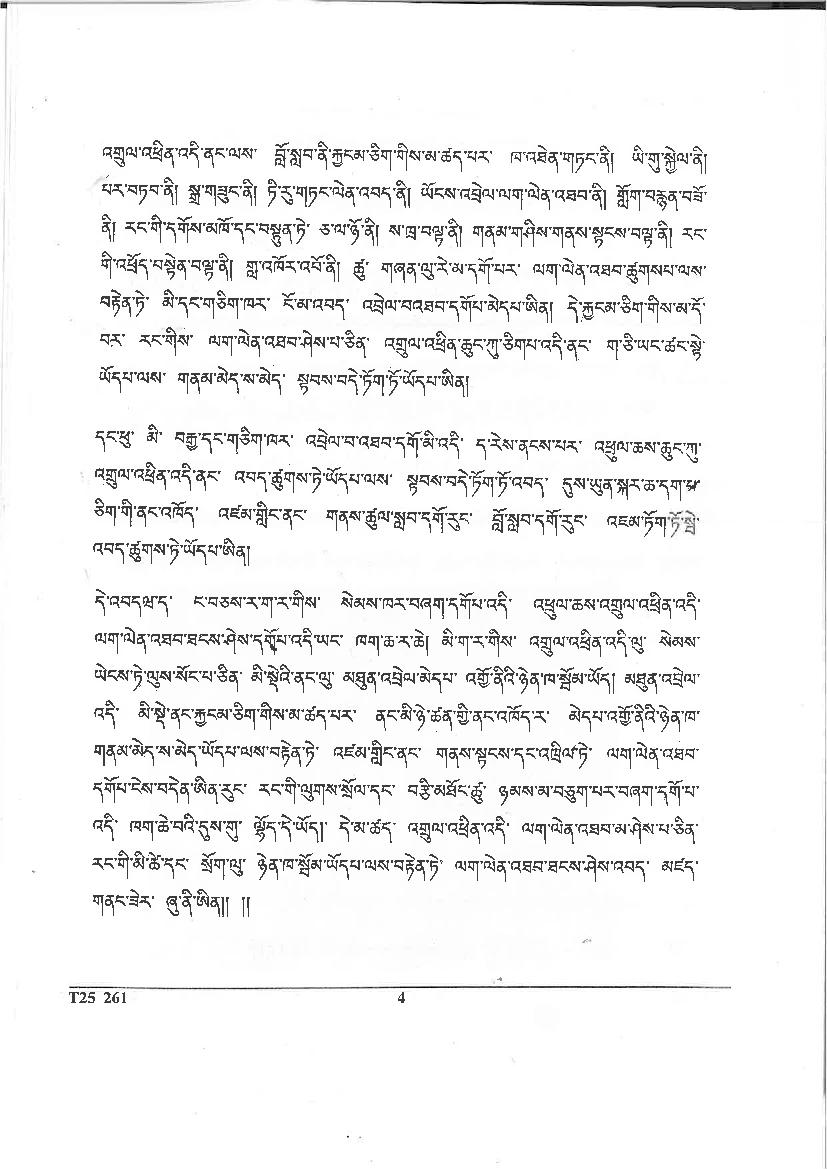 འགྲུལ་འཕྲིན་འདི་ནང་ལས་ བློ་སླབ་ནི་རྐྱངམ་ཅིག་གིས་མ་ཚད་པར་ ཁ་འཐེན་གཏང་ནི། ཡི་གུ་སྐྱེལ་ནི།
པར་བཏབ་ནི། སྒྲ་གཟུང་ནི། ཏི་རུ་གཏང་ལེན་འབད་ནི། ཡོངས་འབྲེལ་ལག་ལེན་འཐབ་ནི། གློག་བརྙན་བཟོ་
ནི། རང་གི་དགོས་མཁོ་དང་བསྟུན་ཏེ་ ཅ་ལ་ཉོ་ནི། ས་ཁྲ་བལྟ་ནི། གནམ་གཤིས་གནས་སྟངས་བལྟ་ནི། རང་
གི་འཕྲོད་བསྟེན་བལྟ་ནི། གླ་འཁོར་འབོ་ནི། ཚུ་ གཞན་ལུ་རེ་མ་དགོ་པར་ ལག་ལེན་འཐབ་ཚུགསཔ་ལས་
བརྟེན་ཏེ་ མི་དང་གཅིག་ཁར་ ངོ་མ་འབད་ འབྲེལ་བ་འཐབ་དགོཔ་མེདཔ་ཨིན། དེ་རྐྱངམ་ཅིག་གིས་མ་དོ་
བར་ རང་གིས་ ལག་ལེན་འཐབ་ཤེས་པ་ཅིན་ འགྲུལ་འཕྲིན་ཆུང་ཀུ་ཅིགཔ་འདི་ནང་ ག་ཅི་ཡང་ཚང་སྟེ་
ཡོདཔ་ལས་ གནམ་མེད་ས་མེད་ སྟབས་བདེ་ཏོག་ཏོ་ཡོདཔ་ཨིན།
དང་ཕུ་ མི་ བརྒྱ་དང་གཅིག་ཁར་ འབྲེལ་བ་འཐབ་དགོ་མི་འདི་ ད་རེས་ནངས་པར་ འཕྲུལ་ཆས་ཆུང་ཀུ་
འགྲུལ་འཕྲིན་འདི་ནང་ འབད་ཚུགས་ཏེ་ཡོདཔ་ལས་ སྟབས་བདེ་ཏོག་ཏོ་འབད་ དུས་ཡུན་སྐར་ཆ་དག་པ་
ཅིག་གི་ནང་འཁོད་ འཛམ་གླིང་ནང་ གནས་ཚུལ་སླབ་དགོ་རུང་ བློ་སླབ་དགོ་རུང་ འཇམ་ཏོག་ཏོ་སྦེ་
འབད་ཚུགས་ཏེ་ཡོདཔ་ཨིན།
དེ་འབདཝ་ད་ ང་བཅས་ར་ག་ར་གིས་ སེམས་ཁར་བཞག་དགོཔ་འདི་ འཕྲུལ་ཆས་འགྲུལ་འཕྲིན་འདི་
ལག་ལེན་འཐབ་ཐངས་ཤེས་དགོཔ་འདི་ཡང་ ཁག་ཆ་ར་ཆེ། མི་ག་ར་གིས་ འགྲུལ་འཕྲིན་འདི་ལུ་ སེམས་
ཡེངས་ཏེ་ལུས་སོང་པ་ཅིན་ མི་སྡེའི་ནང་ལུ་ མཐུན་འབྲེལ་མེདཔ་ འགྱོ་ནིའི་ཉེན་ཁ་སྦོམ་ཡོད། མཐུན་འབྲེལ་
འདི་ མི་སྡེ་ནང་རྐྱངམ་ཅིག་གིས་མ་ཚད་པར་ ནང་མི་ཉེ་ཚན་གྱི་ནང་འཁོད་ར་ མེདཔ་འགྱོ་ནིའི་ཉེན་ཁ་
གནམ་མེད་ས་མེད་ཡོདཔ་ལས་བརྟེན་ཏེ་ འཛམ་གླིང་ནང་ གནས་སྟངས་དང་འཁྲིལ་ཏེ་ ལག་ལེན་འཐབ་
དགོཔ་ངེས་བདེན་ཨིན་རུང་ རང་གི་ལུགས་སྲོལ་དང་ བརྩི་མཐོང་ཚུ་ ཉམས་མ་བཅུག་པར་བཞག་དགོ་པ་
འདི་ ཁག་ཆེ་བའི་དུས་གུ་ ལྷོད་དེ་ཡོད། དེ་མ་ཚད་ འགྲུལ་འཕྲིན་འདི་ ལག་ལེན་འཐབ་མ་ཤེས་པ་ཅིན་
རང་གི་མི་ཚེ་དང་ སྲོག་ལུ་ ཉེན་ཁ་སྦོམ་ཡོདཔ་ལས་བརྟེན་ཏེ་ ལག་ལེན་འཐབ་ཐངས་ཤེས་འབད་ མཛད་
གནང་ཟེར་ ཞུ་ནི་ཨིན།། །།
T25 261 4